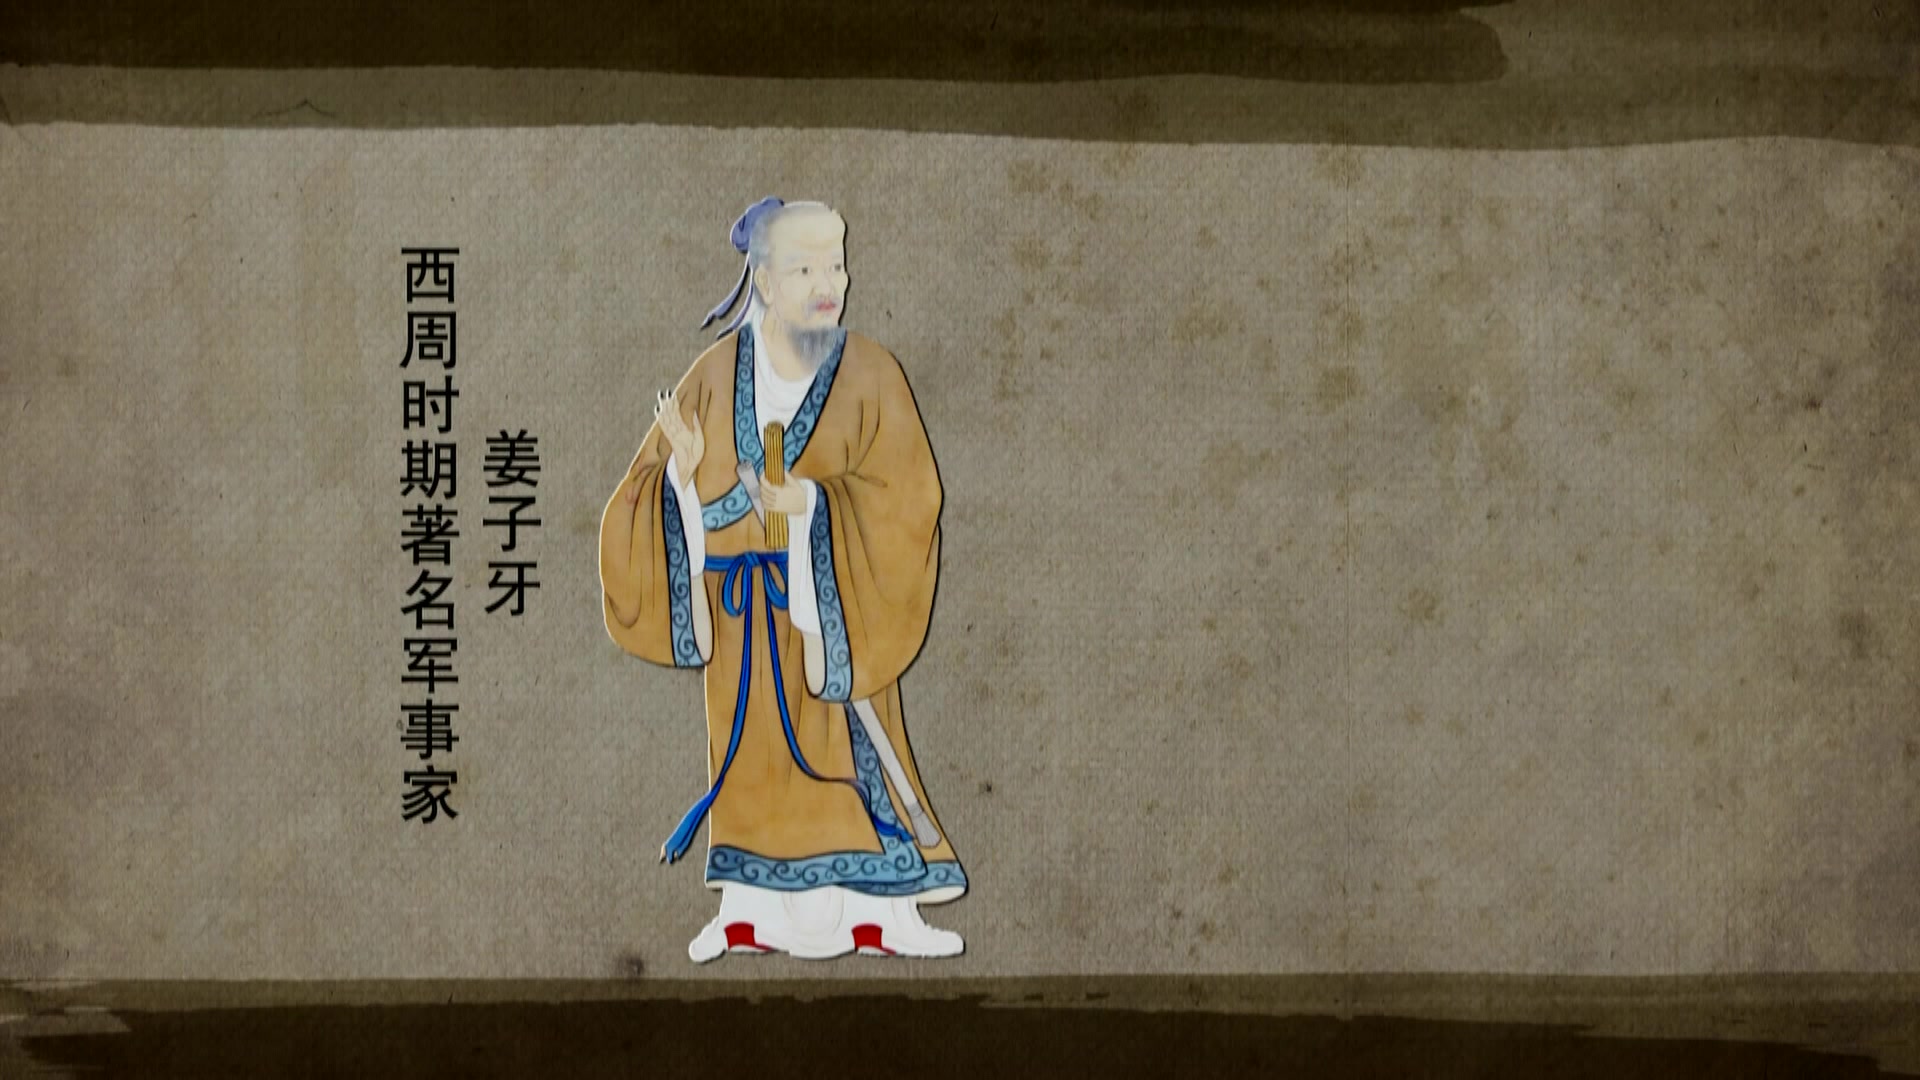 姜子牙
西周时期著名军事家